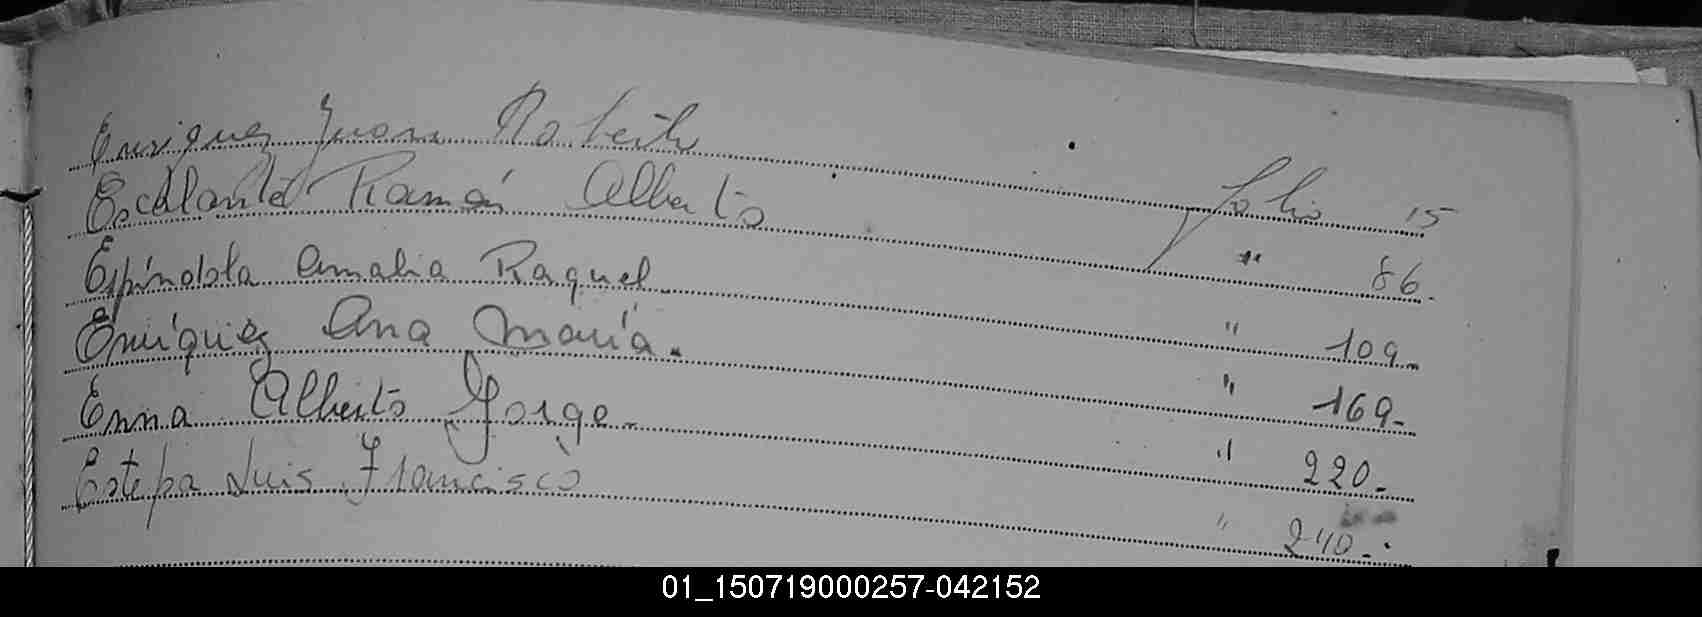 Enriquez Juan Roberto Folio 15
Escalante Ramón Alberto " 86.
Espíndola Amalia Raquel. " 109.
Enríquez Ana María. " 169.
Enna Alberto Jorge. " 220.
Estepa Luis Francisco " 240.
01_150719000257-042152